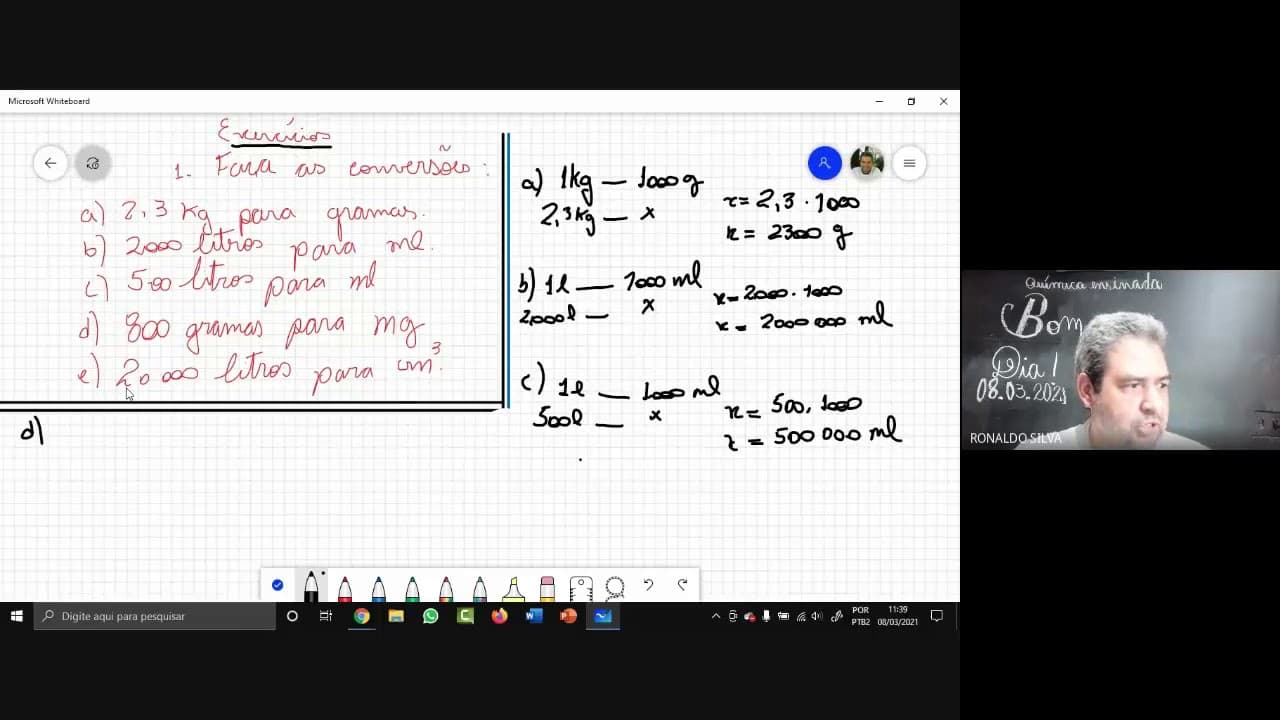 Microsoft Whiteboard
Exercícios
1. Faça as conversões:
a) 2,3 Kg para gramas.
b) 2000 litros para ml.
c) 500 litros para ml
d) 800 gramas para mg
e) 20 000 litros para cm³.
a) 1kg — 1000 g
2,3kg — x
x = 2,3 . 1000
x = 2300 g
b) 1l — 1000 ml
2000l — x
x = 2000 . 1000
x = 2000 000 ml
c) 1l — 1000 ml
500l — x
x = 500 . 1000
x = 500 000 ml
d)
Química ensinada
Bom
Dia!
08.03.2021
RONALDO SILVA
Digite aqui para pesquisar
POR
PTB2
11:39
08/03/2021